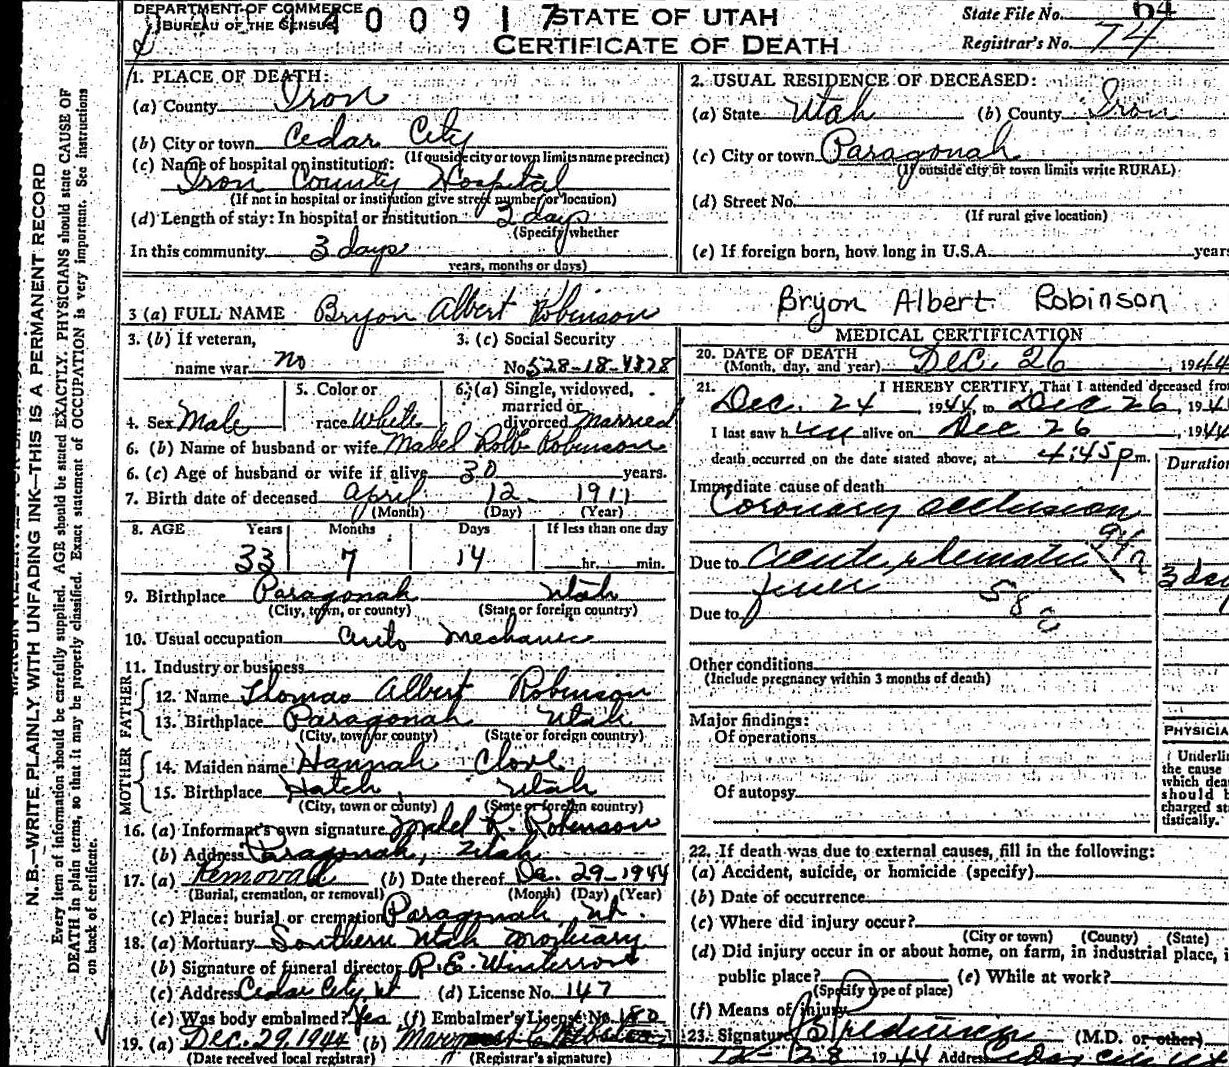 DEPARTMENT OF COMMERCE
BUREAU OF THE CENSUS
400917
STATE OF UTAH
CERTIFICATE OF DEATH
State File No. 64
Registrar's No. 74
N. B.—WRITE PLAINLY WITH UNFADING INK—THIS IS A PERMANENT RECORD
Every item of information should be carefully supplied. AGE should be stated EXACTLY. PHYSICIANS should state CAUSE OF
DEATH in plain terms, so that it may be properly classified. Exact statement of OCCUPATION is very important. See instructions
on back of certificate.
1. PLACE OF DEATH:
(a) County Iron
(b) City or town Cedar City
(If outside city or town limits name precinct)
(c) Name of hospital or institution:
Iron County Hospital
(If not in hospital or institution give street number or location)
(d) Length of stay: In hospital or institution 3 days
(Specify whether
In this community 3 days
years, months or days)
2. USUAL RESIDENCE OF DECEASED:
(a) State Utah (b) County Iron
(c) City or town Paragonah
(If outside city or town limits write RURAL)
(d) Street No.
(If rural give location)
(e) If foreign born, how long in U.S.A. years
3 (a) FULL NAME Bryon Albert Robinson
Bryon Albert Robinson
3. (b) If veteran,
name war no
3. (c) Social Security
No. 528-18-4328
4. Sex Male
5. Color or
race White
6. (a) Single, widowed,
married or
divorced Married
6. (b) Name of husband or wife Mabel Robb Robinson
6. (c) Age of husband or wife if alive 30 years.
7. Birth date of deceased April 12 1911
(Month) (Day) (Year)
8. AGE Years Months Days If less than one day
33 7 14 hr. min.
9. Birthplace Paragonah Utah
(City, town, or county) (State or foreign country)
10. Usual occupation Auto Mechanic
11. Industry or business
FATHER
12. Name Thomas Albert Robinson
13. Birthplace Paragonah Utah
(City, town or county) (State or foreign country)
MOTHER
14. Maiden name Hannah Clove
15. Birthplace Hatch, Utah
(City, town or county) (State or foreign country)
16. (a) Informant's own signature Mabel R. Robinson
(b) Address Paragonah, Utah
17. (a) Removal (b) Date thereof Dec. 29-1944
(Burial, cremation, or removal) (Month) (Day) (Year)
(c) Place: burial or cremation Paragonah, Ut.
18. (a) Mortuary Southern Utah Mortuary
(b) Signature of funeral director R. E. Winterrose
(c) Address Cedar City, Ut (d) License No. 147
(e) Was body embalmed? Yes (f) Embalmer's License No. 180
19. (a) Dec. 29, 1944 (b)
(Date received local registrar) (Registrar's signature)
MEDICAL CERTIFICATION
20. DATE OF DEATH
(Month, day, and year) Dec. 26, 1944
21. I HEREBY CERTIFY, That I attended deceased from
Dec. 24, 1944, to Dec 26, 194
I last saw him alive on Dec 26, 1944
death occurred on the date stated above, at 4:45 p m.
Duration
Immediate cause of death
Coronary occlusion
94a
Due to acute rheumatic
fever
3 day
58c
Due to
Other conditions
(Include pregnancy within 3 months of death)
Major findings:
Of operations
Of autopsy
PHYSICIA
Underlin
the cause
which dea
should b
charged st
tistically.
22. If death was due to external causes, fill in the following:
(a) Accident, suicide, or homicide (specify)
(b) Date of occurrence
(c) Where did injury occur?
(City or town) (County) (State)
(d) Did injury occur in or about home, on farm, in industrial place, i
public place? (e) While at work?
(Specify type of place)
(f) Means of injury
23. Signature (M.D. or other)
12-28 1944 Address Cedar City Ut